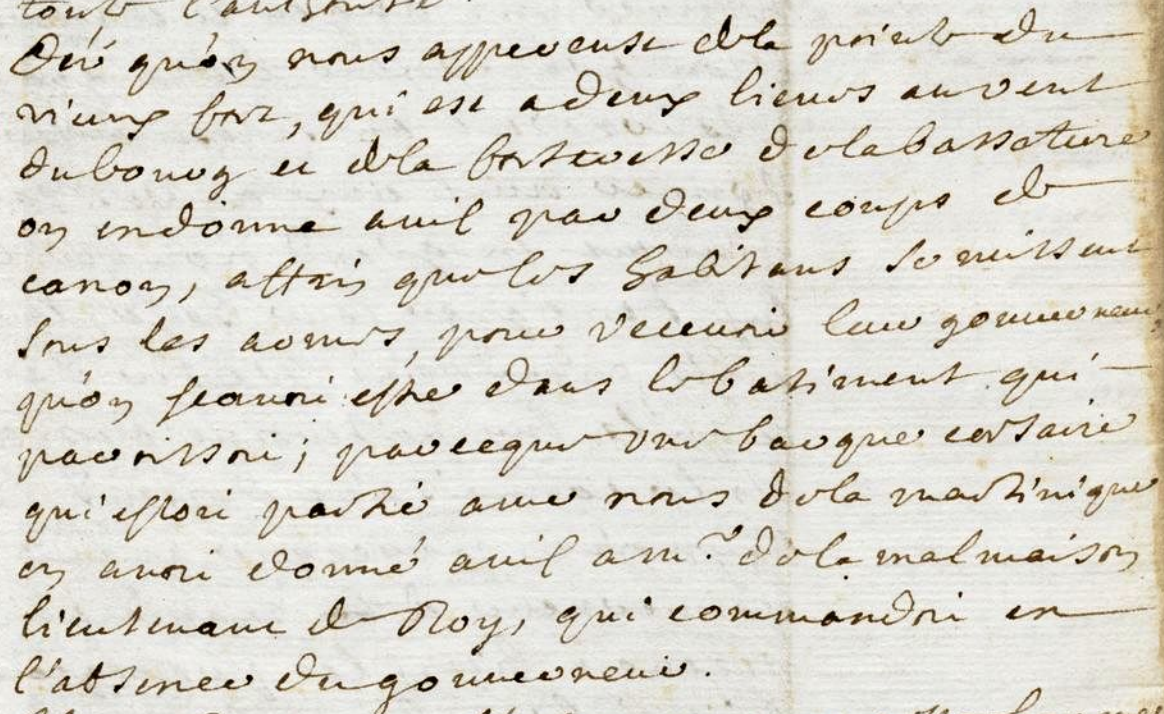 toute l'autorité.
Des qu'on nous apperceust dela pointe du
vieux fort, qui est a deux lieues au vent
du bourg et dela forteresse de la basseterre
on en donne avis par deux coups de
canon, affin que les habitans se missent
sous les armes, pour recevoir leur gouverneur
qu'on scavoit estre dans le batiment qui
paroissoit; parceque une barque corsaire
qui estoit partie avec nous de la martinique
en avoit donné avis a mr. de la malmaison
lieutenant de Roy, qui commandoit en
l'absence du gouverneur.